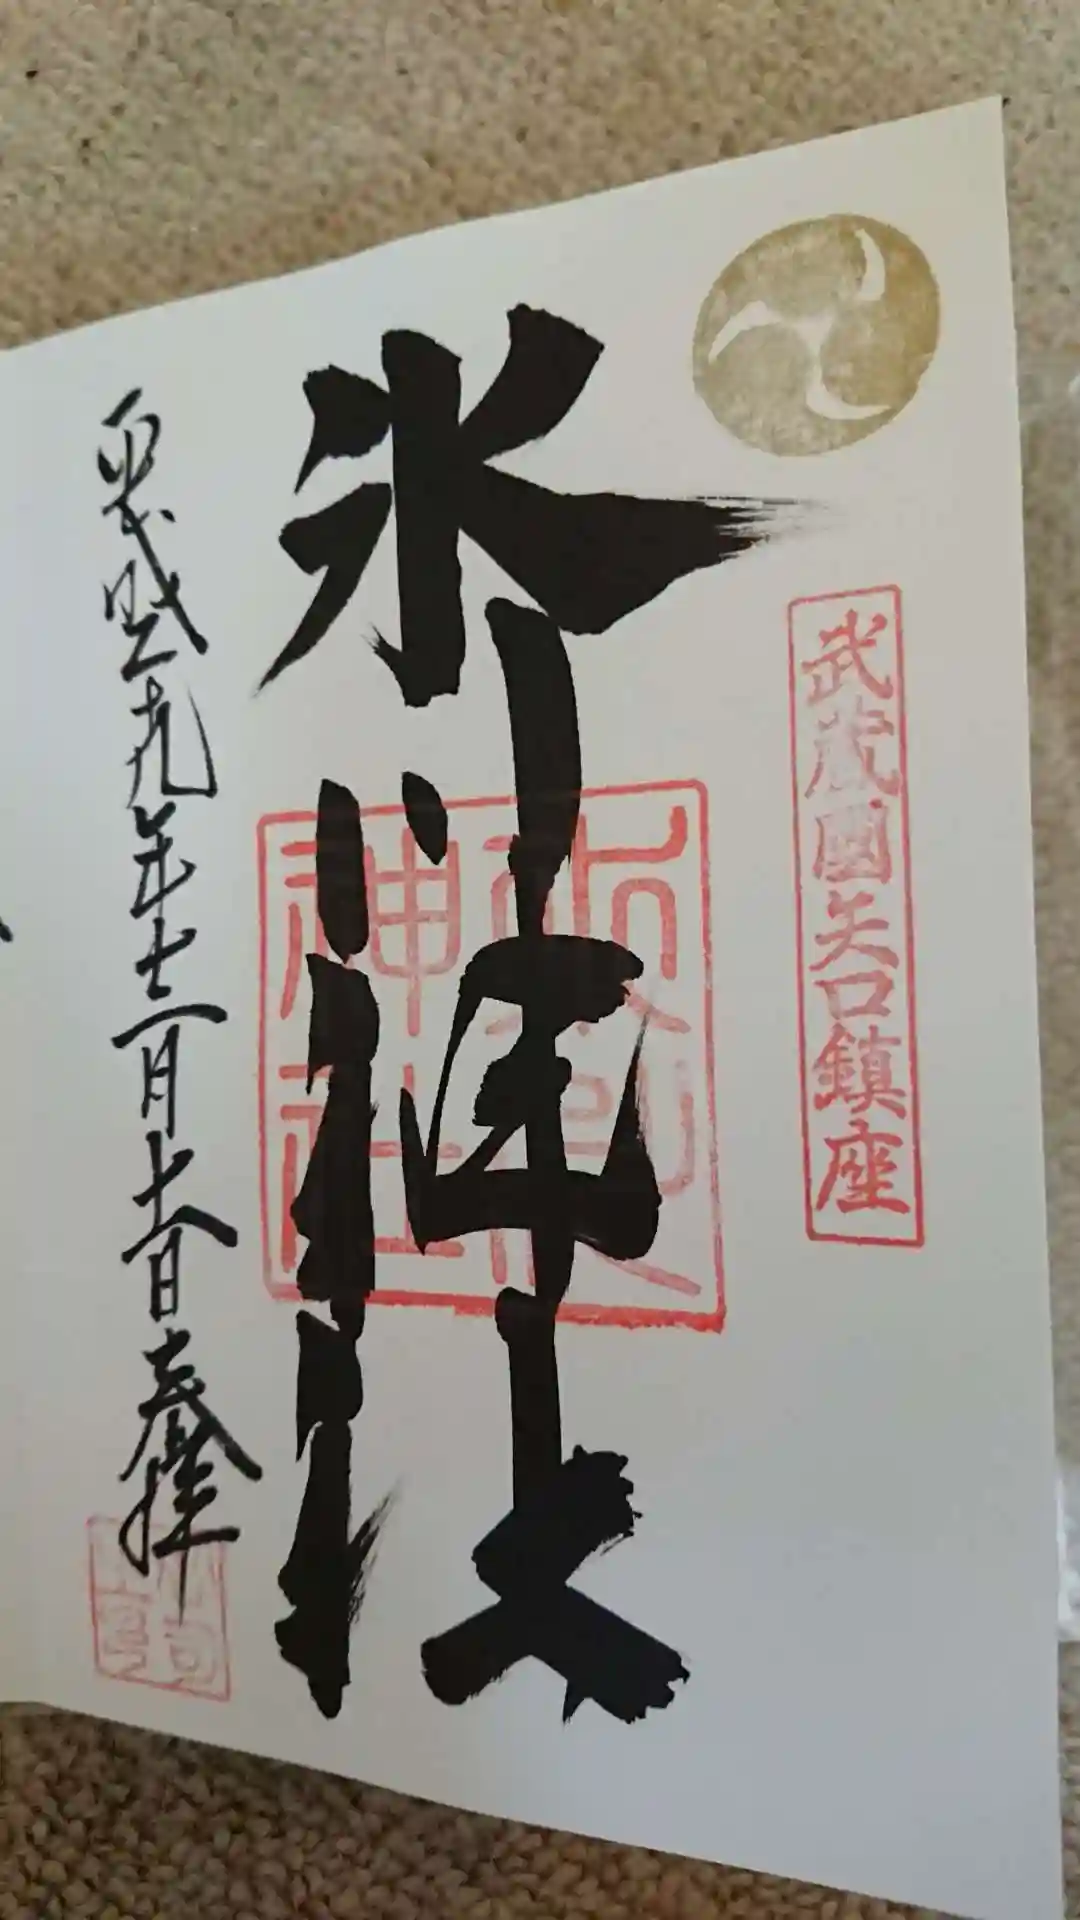 武蔵國矢口鎮座
氷川神社
神社
平成弐十九年十二月十六日奉拝